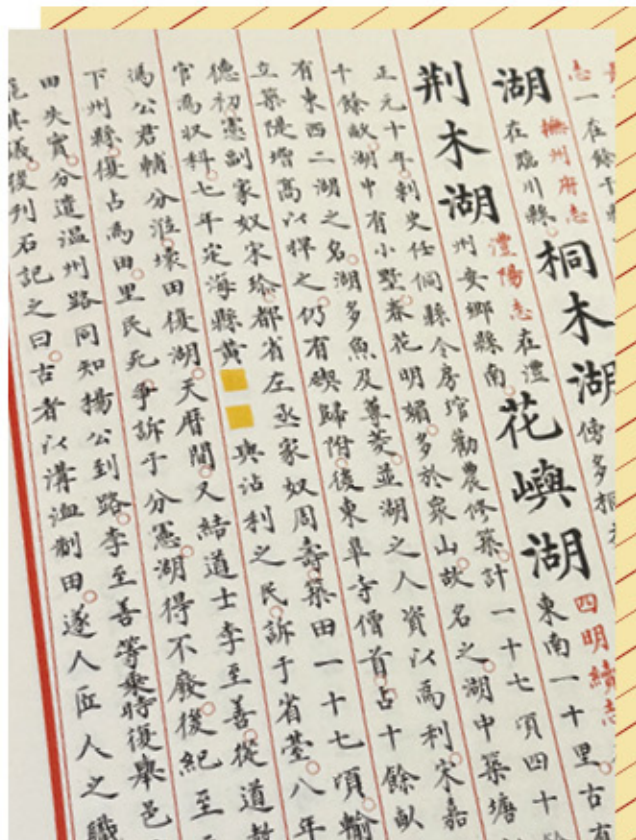 志一在餘干縣
湖撫州府志在臨川縣桐木湖傍多桐木
荆木湖澧陽志在澧
州安鄉縣南花嶼湖四明續志
東南一十里古有
正元十年刺史任侗縣令房琯勸農修築計一十七頃四十
十餘畝湖中有小墅春花明媚多於衆山故名之湖中築塘
有東西二湖之名湖多魚及蓴菱並湖之人資以爲利宋嘉
立築隄增高以捍之仍有碶歸附後東皐寺僧首占十餘畝
德初憲副家奴宋珍都省左丞家奴周壽築田一十七頃輸
官爲収科七年定海縣黄與沾利之民訴于省臺八年
馮公君輔分涖壞田復湖天曆間又結道士李至善從道教
下州縣復占爲田里民死爭訴于分憲湖得不廢後紀至
田失實分遣温州路同知揚公到路李至善等乘時復舉邑
其議後刊石記之曰古者以溝洫制田遂人匠人之職